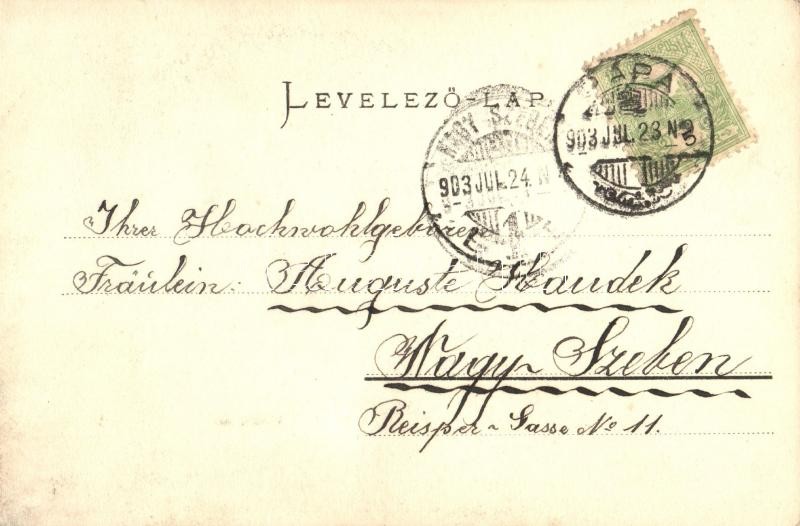 LEVELEZŐ-LAP
PÁPA
903 JUL. 23 N
NAGY SZEBEN
903 JUL. 24 N
Ihrer Hochwohlgeboren
Fräulein: Auguste Kaudek
Nagy-Szeben
Reisper-Gasse No 11.